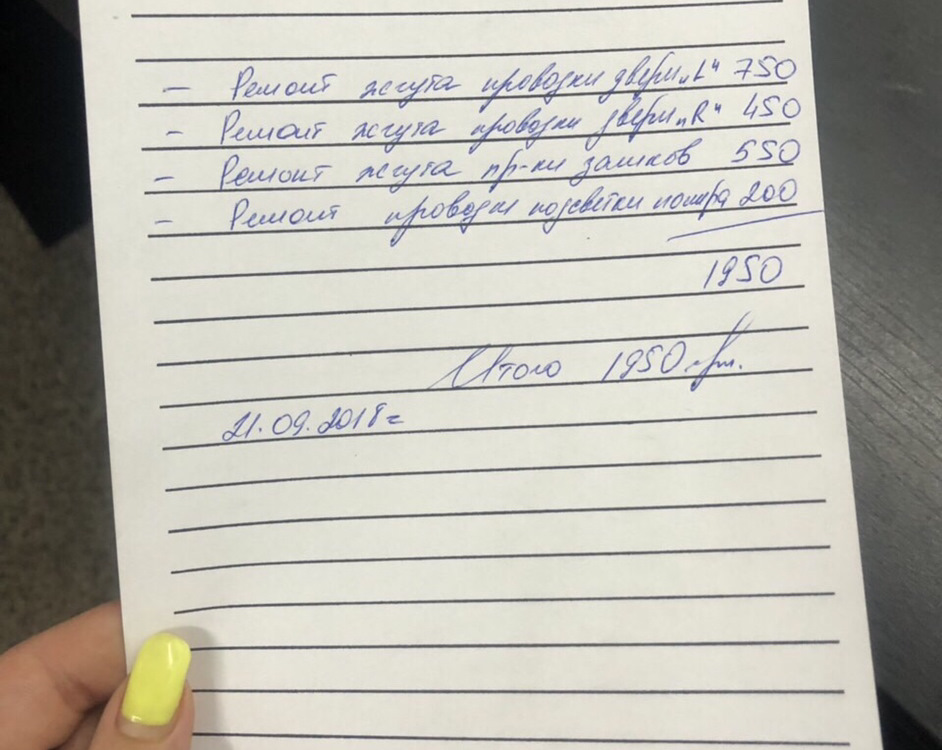 - Ремонт жгута проводки двери „L“ 750
- Ремонт жгута проводки двери „R“ 450
- Ремонт жгута пр-ки замков 550
- Ремонт проводки подсветки номера 200
1950
Итого 1950 грн.
21.09.2018г